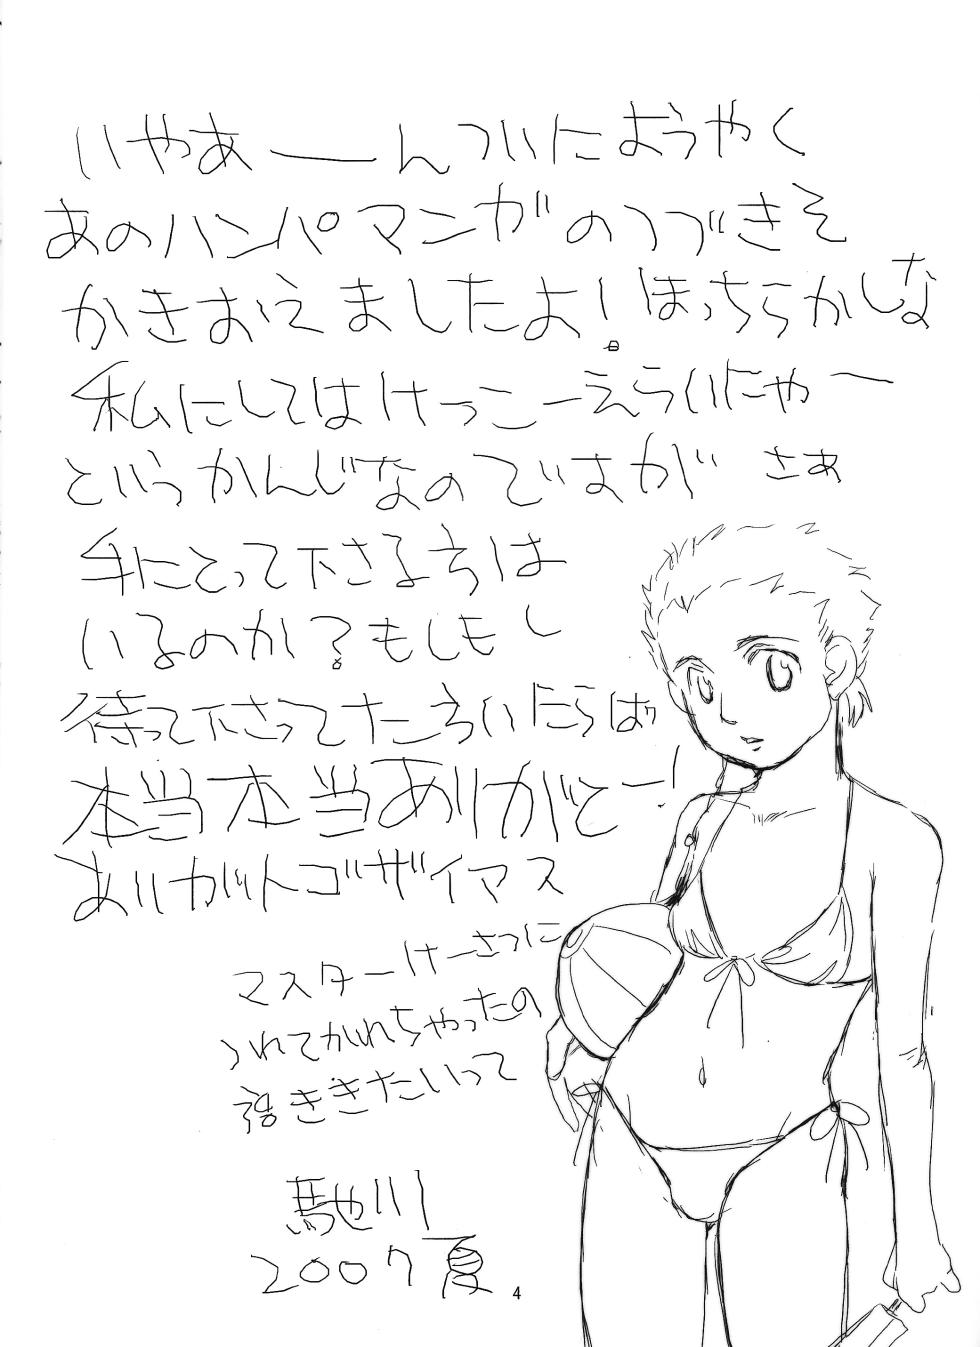 いやあーんついにようやく
あのハンパマンガのつづきを
かきおえましたよ！ほっちらかしな
私にしてはけっこーえらいにゃー
というかんじなのですが さあ
手にとって下さる方は
いるのか？もしもし
待って下さってた方いたらば
本当本当ありがとー！
ありがットゴザイマス
マスターけーさつに
つれてかれちゃったの
ききたいって
馳川
2007夏
4